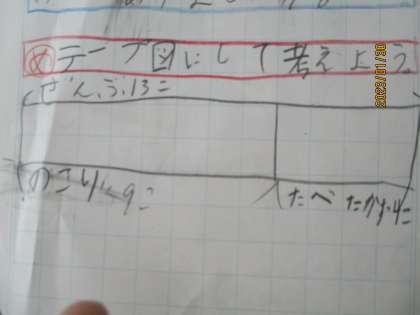 めテープ図にして考えよう
ぜんぶ13こ
のこり9こ
たべたかず4こ
2023/01/30